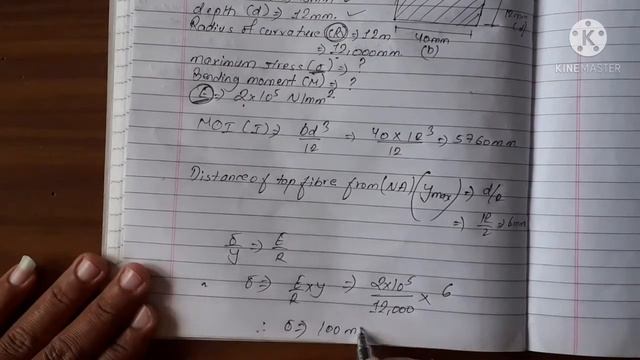 depth (d) => 12mm. ✓
Radius of curvature (R) => 12m
=> 12,000mm
maximum stress (σ) => ?
Bending moment (M) => ?
E => 2×10⁵ N/mm²
40mm
(b)
12mm
(d)
KINEMASTER
MOI (I) => bd³/12 => 40×12³/12 => 5760mm
Distance of top fibre from (NA) (ymax) => d/2
=> 12/2 => 6mm
σ/y => E/R
σ => E/R × y => 2×10⁵/12,000 × 6
∴ σ => 100 m